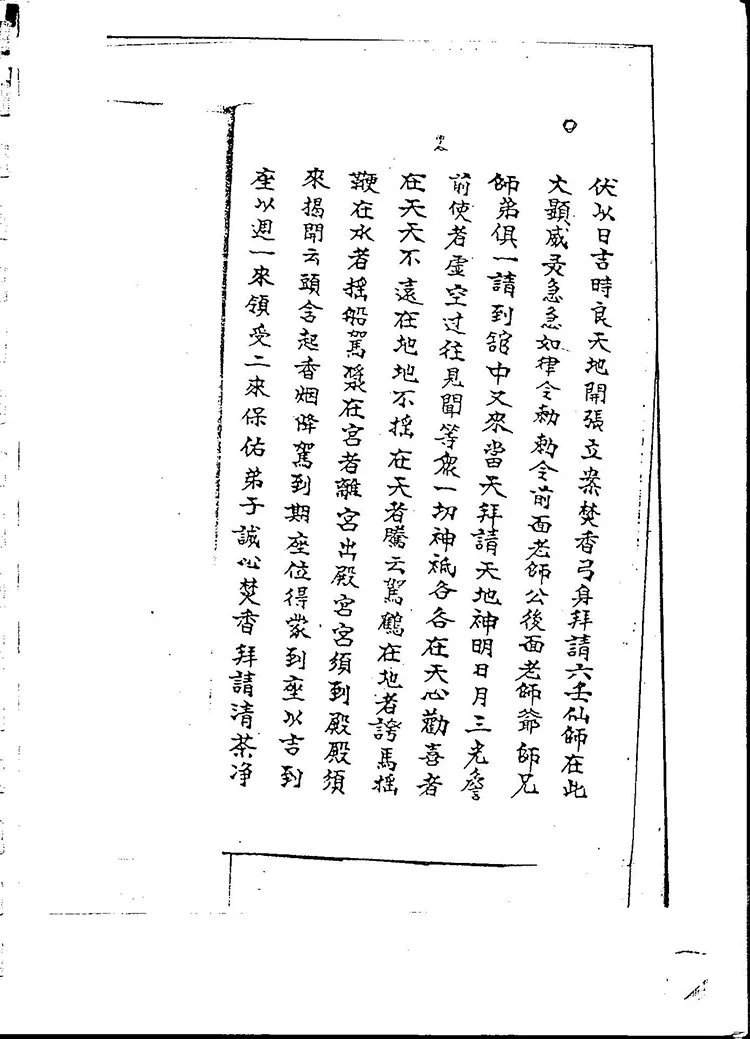 伏以日吉時良天地開張立案焚香弓身拜請六壬仙師在此
大顯威灵急急如律令勅勅令前面老師公後面老師爺師兄
師弟俱一請到舘中又來當天拜請天地神明日月三光簷
前使者虛空过往見聞等眾一切神祗各各在天心勸喜者
在天天不遠在地地不搖在天者騰云駕鶴在地者誇馬搖
鞭在水者搖船駕槳在宮者離宮出殿宮宮須到殿殿須
來揭開云頭含起香烟降駕到期座位得蒙到座以吉到
座以週一來領受二來保佑弟子誠心焚香拜請清茶净